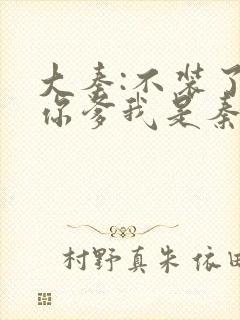 大秦:不装了
你爹我是秦
村野真朱 依田